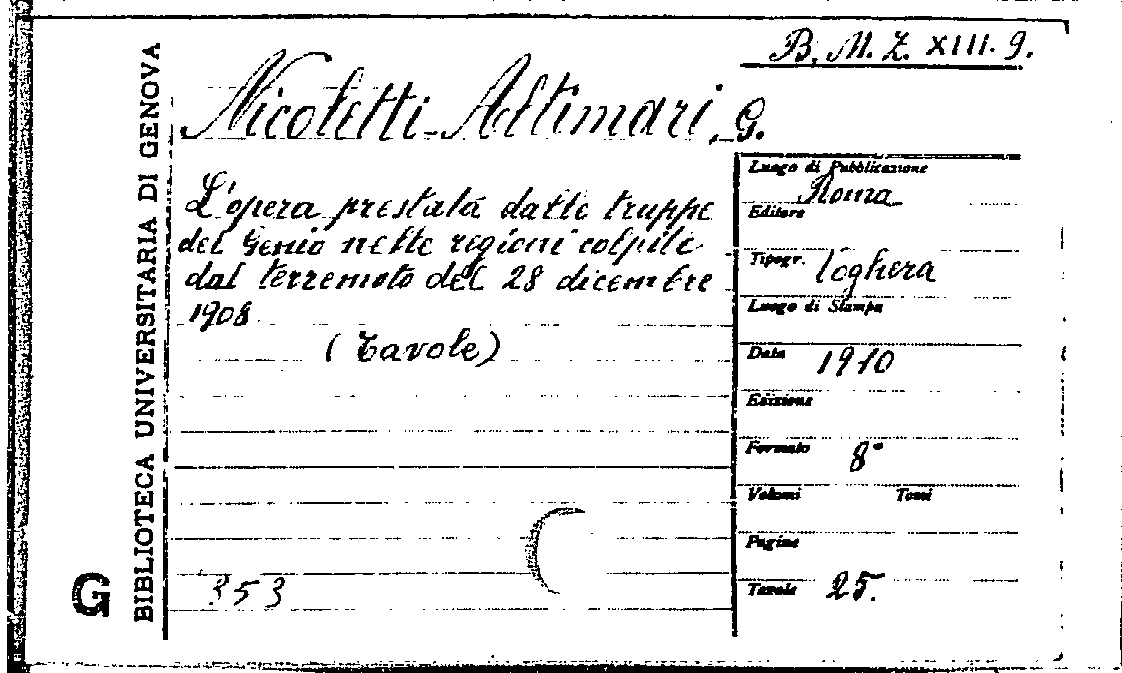 B. M. Z. XIII. 9.
Nicoletti-Altimari, G.
L'opera prestata dalle truppe
del Genio nelle regioni colpite
dal terremoto del 28 dicembre
1908
(Tavole)
353
Luogo di Pubblicazione
Roma
Editore
Tipogr. Voghera
Luogo di Stampa
Data 1910
Edizione
Formato 8°
Volumi Tomi
Pagine
Tavole 25.
BIBLIOTECA UNIVERSITARIA DI GENOVA
G